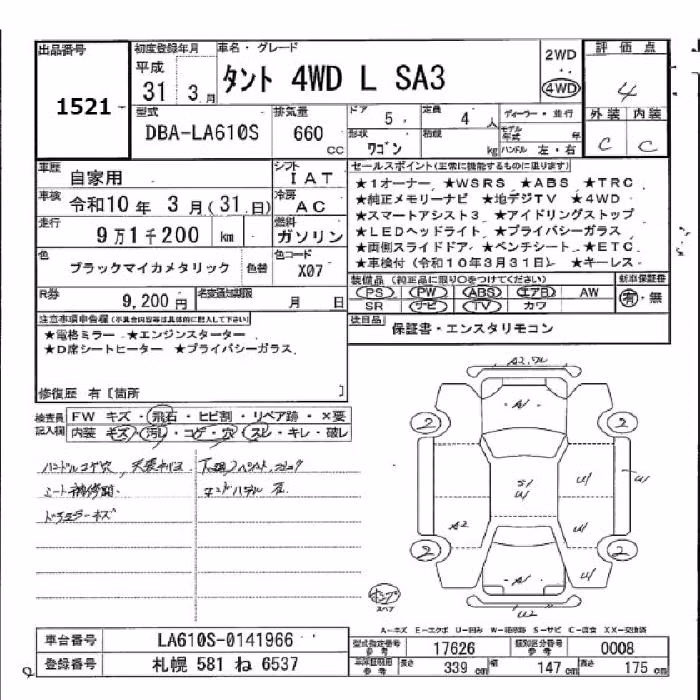 出品番号 初度登録年月 車名・グレード 2WD 評価点
1521 平成 31年 3月 タント 4WD L SA3 4WD 4
型式 排気量 ドア 定員 ディーラー・並行 外装 内装
DBA-LA610S 660 CC 5 4人 モデル年式 年 C C
形状 ワゴン 積載 kg ハンドル 左・右
車歴 自家用 シフト IAT セールスポイント(正常に機能するものに限ります)
★1オーナー ★WSRS ★ABS ★TRC
車検 令和10年 3月(31日) 冷房 AC ★純正メモリーナビ ★地デジTV ★4WD
★スマートアシスト3 ★アイドリングストップ
走行 9万1千200 km 燃料 ガソリン ★LEDヘッドライト ★プライバシーガラス
★両側スライドドア ★ベンチシート ★ETC
色 ブラックマイカメタリック 色替 色コード X07 ★車検付(令和10年3月31日) ★キーレス
装備品(純正品に限り○をつけてください) 新車保証書
R券 9,200円 名変通知期限 月 日 PS PW ABS エアB AW 有・無
SR ナビ TV カワ
注意事項申告欄(不具合内容等は具体的に記入して下さい) 後日品 保証書・エンスタリモコン
★電格ミラー ★エンジンスターター
★D席シートヒーター ★プライバシーガラス
修復歴 有〔箇所 〕
検査員記入欄 FW キズ・飛石・ヒビ割・リペア跡・×要
内装 キズ・汚レ・コゲ・穴・スレ・キレ・破レ
ハンドル
ドアミラーキズ
A2
2 2
A2
2 2
U2
スペア
A-キズ E-エクボ U-凹み W-補修跡 S-サビ C-腐食 XX-交換済
車台番号 LA610S-0141966 型式指定番号 参考 17626 類別区分番号 参考 0008
登録番号 札幌 581 ね 6537 長さ 339 cm 幅 147 cm 高さ 175 cm